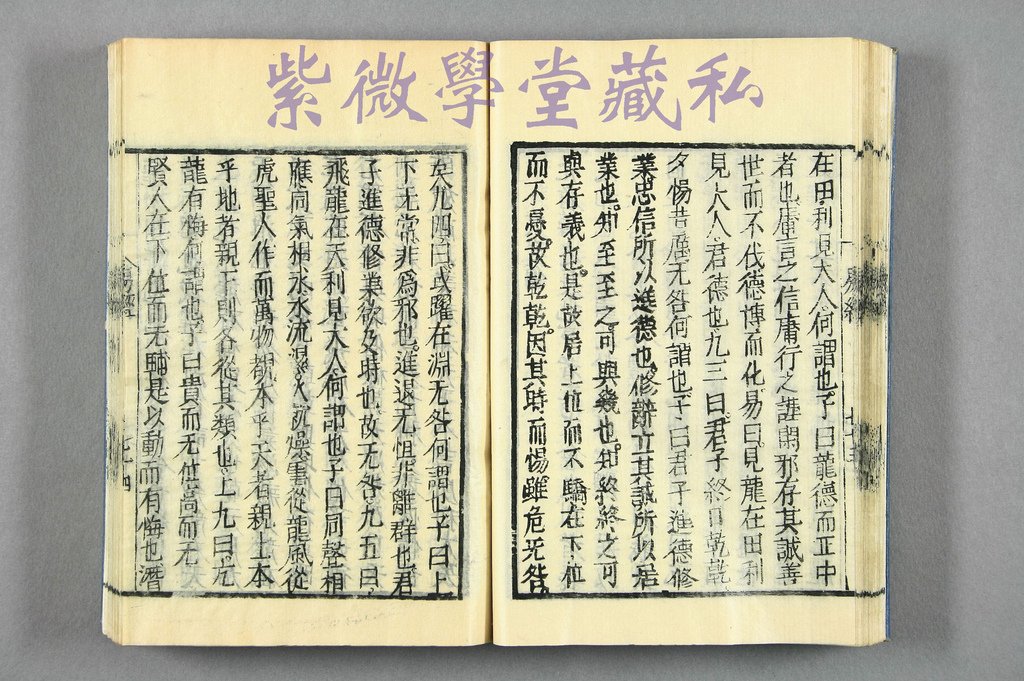 紫微學堂藏私
在田利見大人何謂也子曰龍德而正中
者也庸言之信庸行之謹閑邪存其誠善
世而不伐德博而化易曰見龍在田利
見大人君德也九三曰君子終日乾乾
夕惕若厲无咎何謂也子曰君子進德修
業忠信所以進德也修辭立其誠所以居
業也知至至之可與幾也知終終之可
與存義也是故居上位而不驕在下位
而不憂故乾乾因其時而惕雖危无咎
矣九四曰或躍在淵无咎何謂也子曰上
下无常非爲邪也進退无恒非離群也君
子進德修業欲及時也故无咎九五曰
飛龍在天利見大人何謂也子曰同聲相
應同氣相求水流濕火就燥雲從龍風從
虎聖人作而萬物覩本乎天者親上本
乎地者親下則各從其類也上九曰亢
龍有悔何謂也子曰貴而无位高而无
賢人在下位而无輔是以動而有悔也潛
易經
易經